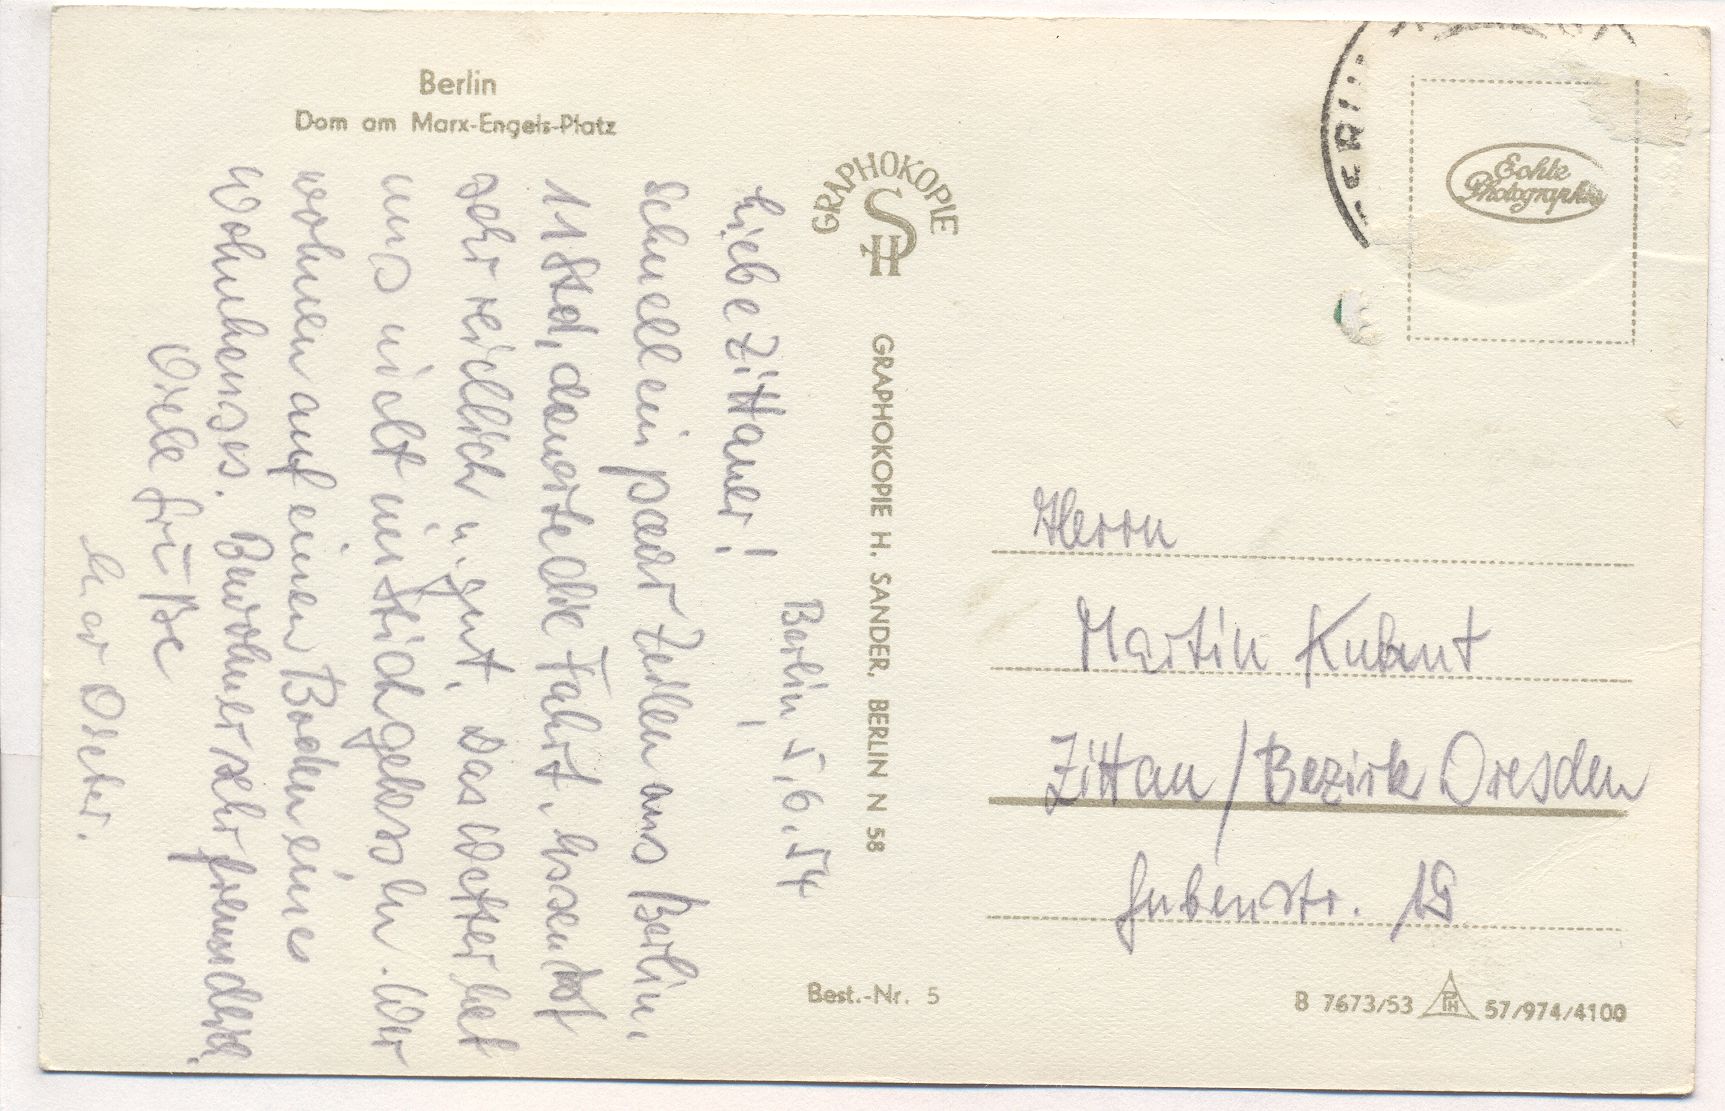 Berlin
Dom am Marx-Engels-Platz
GRAPHOKOPIE
HS
GRAPHOKOPIE H. SANDER, BERLIN N 58
Best.-Nr. 5
Berlin, 5.6.54
Liebe Zittauer!
Schnell ein paar Zeilen aus Berlin.
11 Std, dauerte die Fahrt. Essen ist
sehr reichlich u. gut. Das Wetter hat
uns nicht im Stich gelassen. Wir
wohnen auf einen Boden eines
Wohnhauses. Bewohner sehr freundlich.
Viele Grüße
BERLIN
Echte
Photographie
Herrn
Martin Kubent
Zittau / Bezirk Dresden
Gubenstr.
B 7673/53 PH 57/974/4100